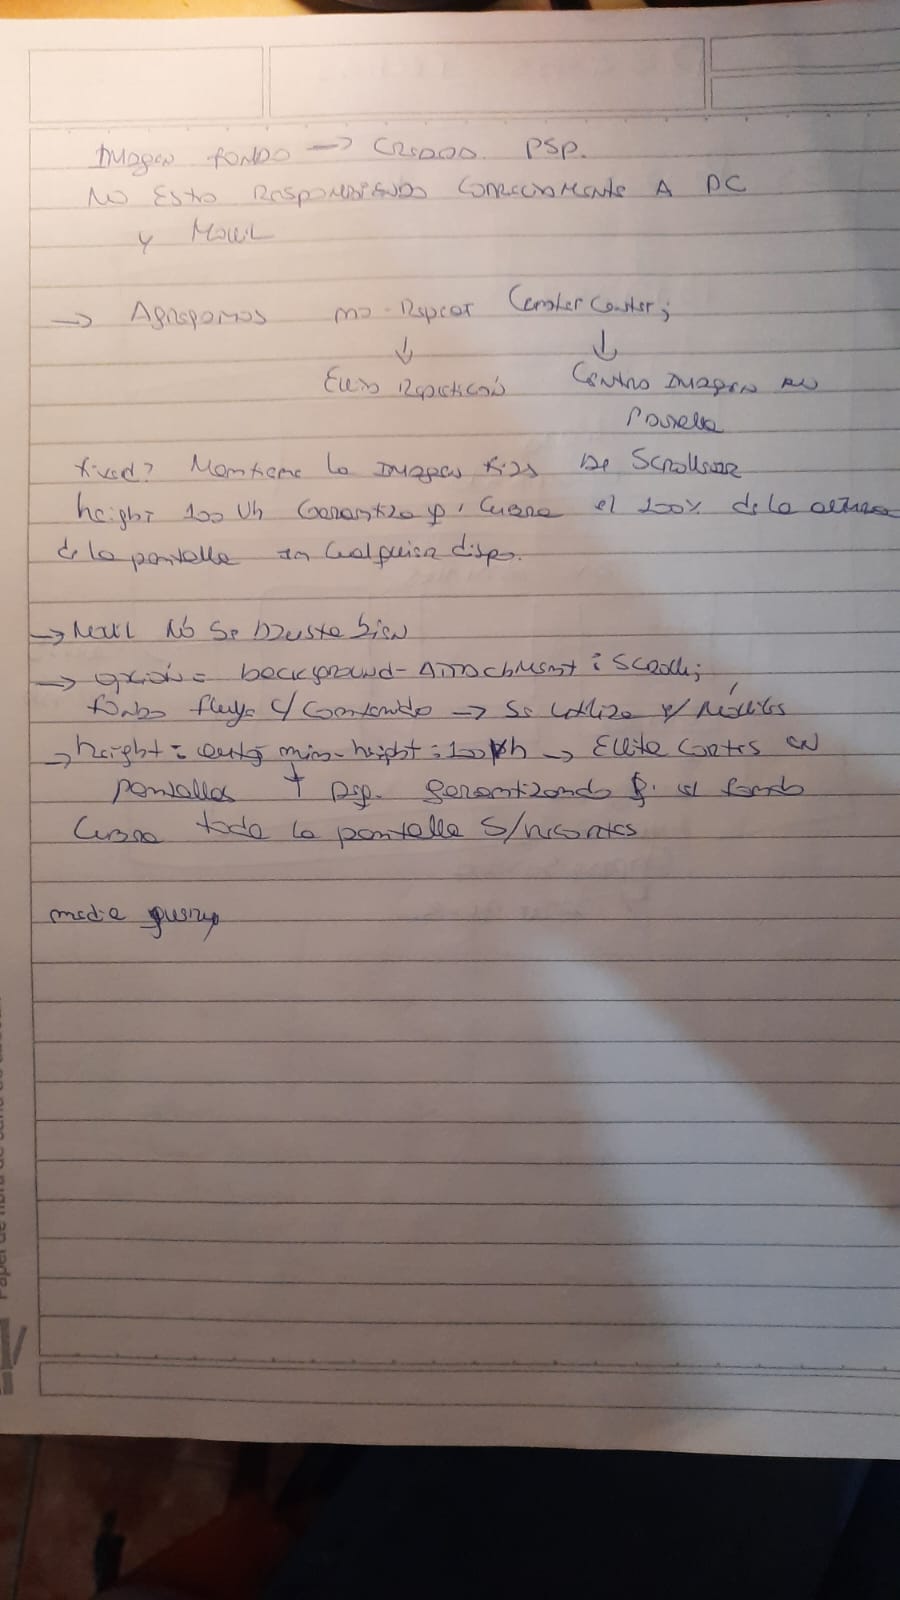 Imagen fondo → creado PSP.
No esta respondiendo correctamente a PC
y Movil
→ Agregamos no-repeat center center;
↓ ↓
Evita repetición Centra imagen en
Pantalla
fixed? Mantiene la imagen fija scrollear
height 100 vh Garantiza q' cubra el 100% de la altura
de la pantalla en cualquier disp.
→ Movil No se ajusta bien
→ background-attachment: scroll;
fondo fluye c/ contenido → Se utiliza p/ móviles
→ height: auto; min-height: 100vh → Evita cortes en
pantallas garantizando q. el fondo
cubra toda la pantalla s/recortes
media query